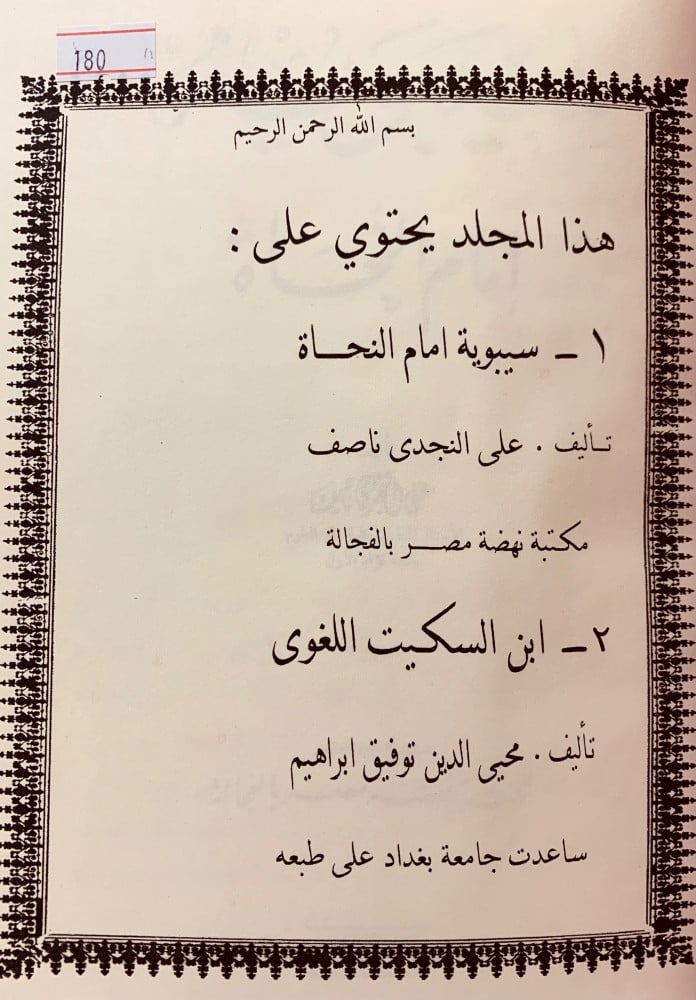 180
بسم الله الرحمن الرحيم
هذا المجلد يحتوي على :
١ ـ سيبوية امام النحـــاة
تـأليف . على النجدى ناصف
مكتبة نهضة مصـــر بالفجالة
٢ ـ ابن السكـيت اللغوى
تأليف . محيى الدين توفيق ابراهيم
ساعدت جامعة بغداد على طبعه